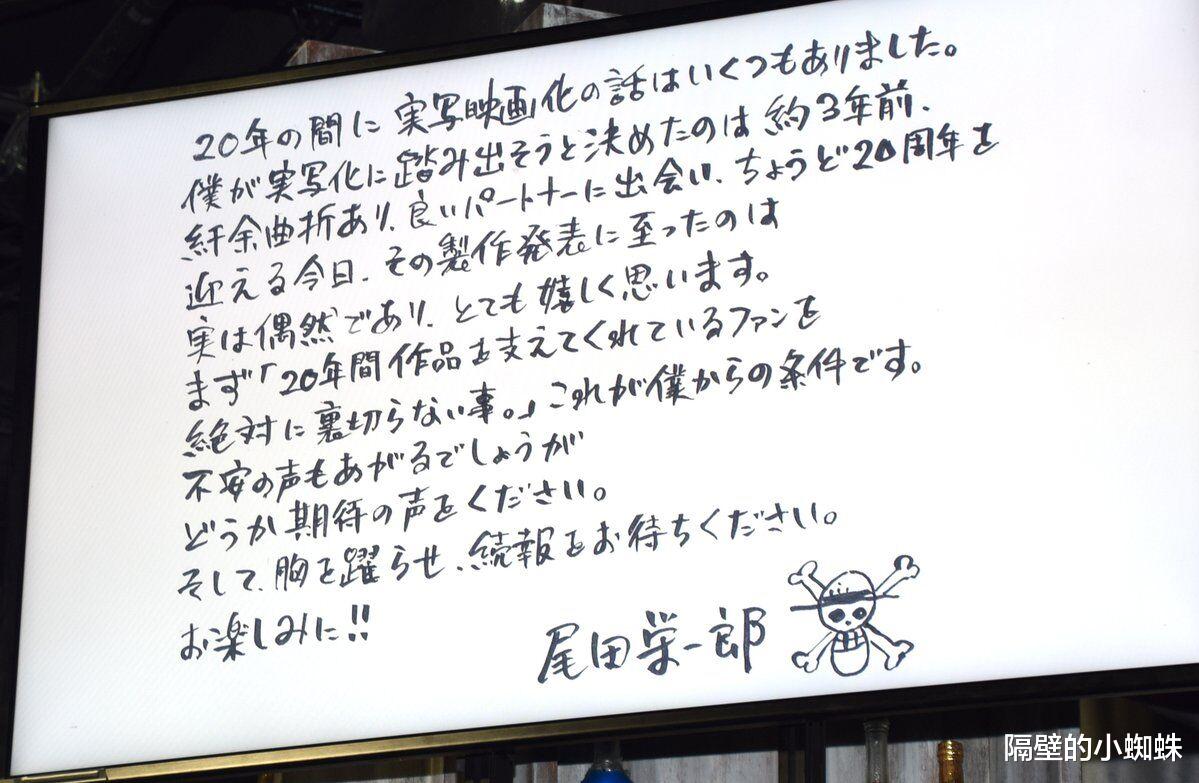 20年の間に実写映画化の話はいくつもありました。
僕が実写化に踏み出そうと決めたのは約3年前、
紆余曲折あり、良いパートナーに出会い、ちょうど20周年を
迎える今日、その製作発表に至ったのは
実は偶然であり、とても嬉しく思います。
まず「20年間作品を支えてくれているファンを
絶対に裏切らない事。」これが僕からの条件です。
不安の声もあがるでしょうが
どうか期待の声をください。
そして、胸を躍らせ、続報をお待ちください。
お楽しみに!!
尾田栄一郎
隔壁的小蜘蛛